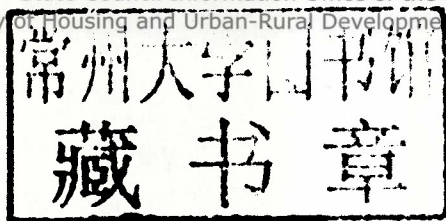 y of Housing and Urban-Rural Developme
常州大学图书馆
藏书章